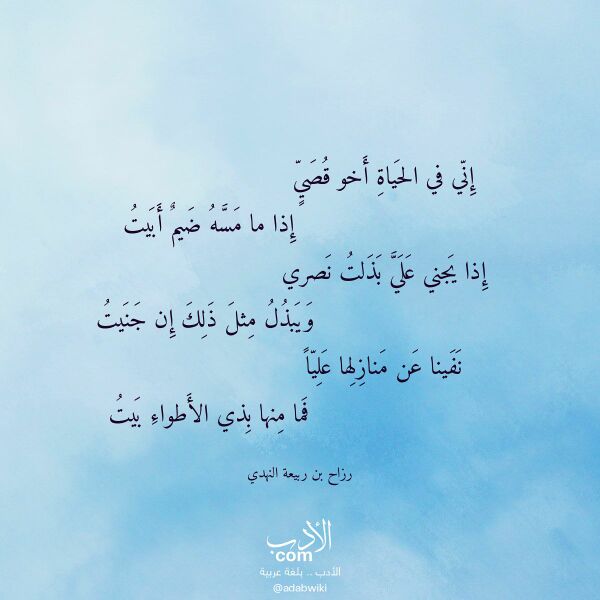 إِنّي في الحَياةِ أَخو قُصَيٍّ
إِذا ما مَسَّهُ ضَيمٌ أَبَيتُ
إِذا يَجني عَلَيَّ بَذَلتُ نَصري
وَيَبذُلُ مِثلَ ذَلِكَ إِن جَنَيتُ
نَفَينا عَن مَنازِلِها عَلِيّاً
فَما مِنها بِذي الأَطواءِ بَيتُ
رزاح بن ربيعة النهدي
الأدب
com
الأدب .. بلغة عربية
@adabwiki